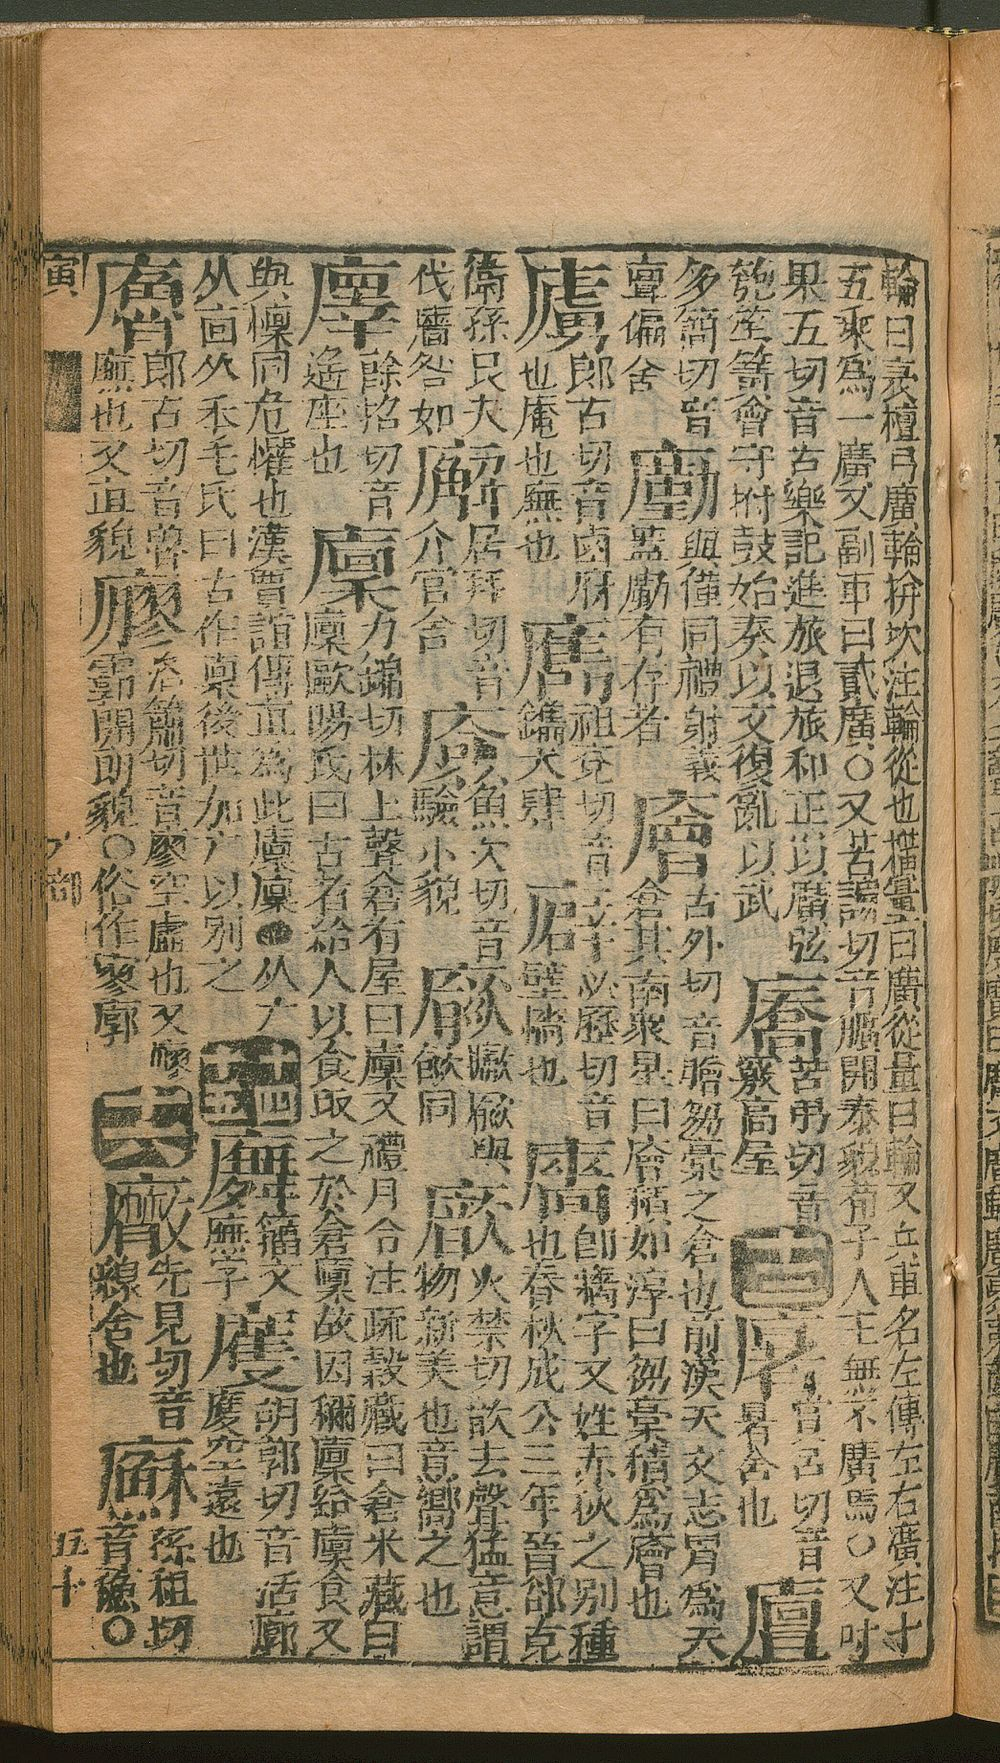 輪曰袤檀弓廣輪揜坎注輪從也橫量曰廣從量曰輪又兵車名左傳左右廣注十
五乘爲一廣又副車曰貳廣○又苦謗切音曠開泰貌荀子人主無不廣焉○又吋
果五切音古樂記進旅退旅和正以廣弦
匏笙簧會守拊鼓始奏以文復亂以武
廥苦弔切音
竅高屋
十三
㕑
暑舍也
多簡切音
亶偏舍
廑與僅同禮射義
蓋廑有存者
廥古外切音膾芻稾之倉也前漢天文志胃爲天
倉其南衆星曰廥積如淳曰芻稾積爲廥也
廬郎古切音鹵府
也庵也廡也
祖兗切音
鐫犬肆
廦必歷切音
壁牆也
廧卽牆字又姓赤狄之别種
也春秋成公三年晉郤克
衞孫良夫
伐廧咎如
廨居拜切音
介官舍
魚欠切音
驗小貌
廞與
同
火禁切歆去聲猛意謂
物新美也意嚮之也
餘招切音
遙座也
廩力錦切林上聲倉有屋曰廩又禮月令注疏榖藏曰倉米藏曰
廩歐陽氏曰古者給人以食取之於倉廩故因稱廩給廩食又
與懍同危懼也漢賈誼傳直爲此廩廩●从广
从㐭从禾毛氏曰古作稟後世加广以别之
十四
十五
籀文
廡字
胡郭切音活廓
空遠也
郎古切音魯
廡也又直貌
廫洛簫切音廖空虛也又
開朗貌○俗作寥廓
十六
先見切音
線舍也
孫租切
音穌○
寅
广部
五十